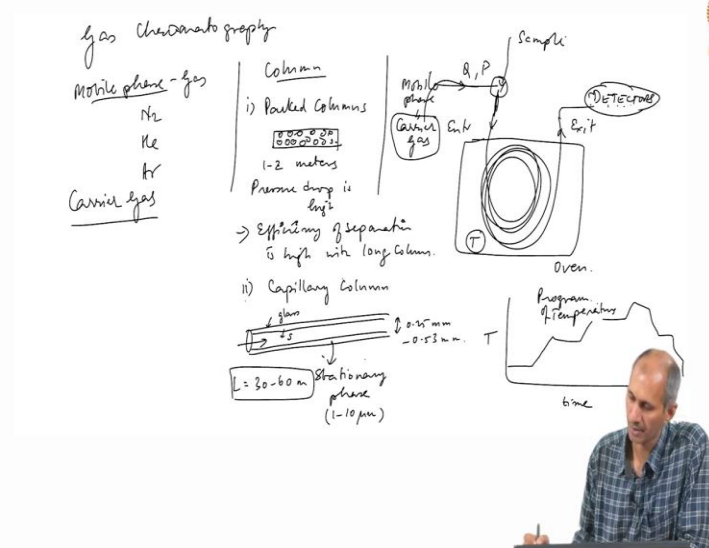 Gas Chromatography
Mobile phase - Gas
N2
He
Ar
Carrier Gas
Column
i) Packed Columns
1-2 meters
Pressure drop is
high
→ Efficiency of separation
is high with long column.
ii) Capillary Column
glass
S
0.25 mm
-0.53 mm.
L = 30-60 m
Stationary
phase
(1-10 μm)
Sample
Q, P
Mobile
phase
Carrier
gas
Entr
Exit
DETECTORS
T
Oven.
Program
of Temperature
T
time